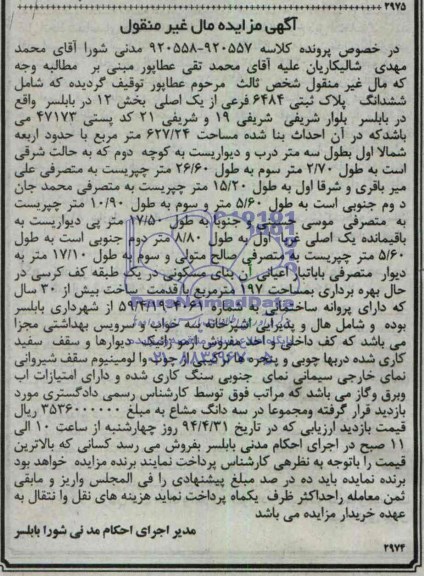 ۲۹۷۵
آگهی مزایده مال غیر منقول
در خصوص پرونده کلاسه ۹۲۰۵۵۷-۹۲۰۵۵۸ مدنی شورا آقای محمد
مهدی شالیکاریان علیه آقای محمد تقی عطاپور مبنی بر مطالبه وجه
که مال غیر منقول شخص ثالث مرحوم عطاپور توقیف گردیده که شامل
ششدانگ پلاک ثبتی ۶۴۸۴ فرعی از یک اصلی بخش ۱۲ در بابلسر واقع
در بابلسر بلوار شریفی شریفی ۱۹ و شریفی ۲۱ کد پستی ۴۷۱۷۳ می
باشدکه در آن احداث بنا شده مساحت ۶۲۷/۲۴ متر مربع با حدود اربعه
شمالا اول بطول سه متر درب و دیواریست به کوچه دوم که به حالت شرقی
است به طول ۲/۷۰ متر سوم به طول ۲۶/۶۰ متر چپریست به متصرفی علی
میر باقری و شرقا اول به طول ۱۵/۲۰ متر چپریست به متصرفی محمد جان
د وم جنوبی است به طول ۵/۶۰ متر و سوم به طول ۱۰/۹۰ متر چپریست
به متصرفی موسی حبیبی و جنوبا به طول ۱۷/۵۰ متر پی دیواریست به
باقیمانده یک اصلی غربا اول به طول ۸/۸۰ متر دوم جنوبی است به طول
۵/۶۰ متر چپریست به متصرفی صالح متولی و سوم به طول ۱۷/۱۰ متر به
دیوار متصرفی باباتبار اعیانی آن بنای مسکونی در یک طبقه کف کرسی در
حال بهره برداری بمساحت ۱۹۷ مترمربع با قدمت ساخت بیش از ۳۰ سال
که دارای پروانه ساختمانی به شماره از شهرداری بابلسر
بوده و شامل هال و پذیرایی آشپزخانه سه خواب و سرویس بهداشتی مجزا
می باشد که کف داخلی و احد مفروش از موزائیک دیوارها و سقف سفید
کاری شده دربها چوبی و پنجره ها ترکیبی از چوب و آلومینیوم سقف شیروانی
نمای خارجی سیمانی نمای جنوبی سنگ کاری شده و دارای امتیازات اب
وبرق وگاز می باشد که مراتب فوق توسط کارشناس رسمی دادگستری مورد
بازدید قرار گرفته ومجموعا در سه دانگ مشاع به مبلغ ۳۵۳۶۰۰۰۰۰۰ ریال
قیمت بازدید ارزیابی که در تاریخ ۹۴/۴/۳۱ روز چهارشنبه از ساعت ۱۰ الی
۱۱ صبح در اجرای احکام مدنی بابلسر بفروش می رسد کسانی که بالاترین
قیمت را باتوجه به نظرهی کارشناس پرداخت نمایند برنده مزایده خواهد بود
برنده نمایده باید ده در صد مبلغ پیشنهادی را فی المجلس واریز و مابقی
ثمن معامله راحداکثر ظرف یکماه پرداخت نماید هزینه های نقل وا نتقال به
عهده خریدار مزایده می باشد
مدیر اجرای احکام مد نی شورا بابلسر
۲۹۷۴